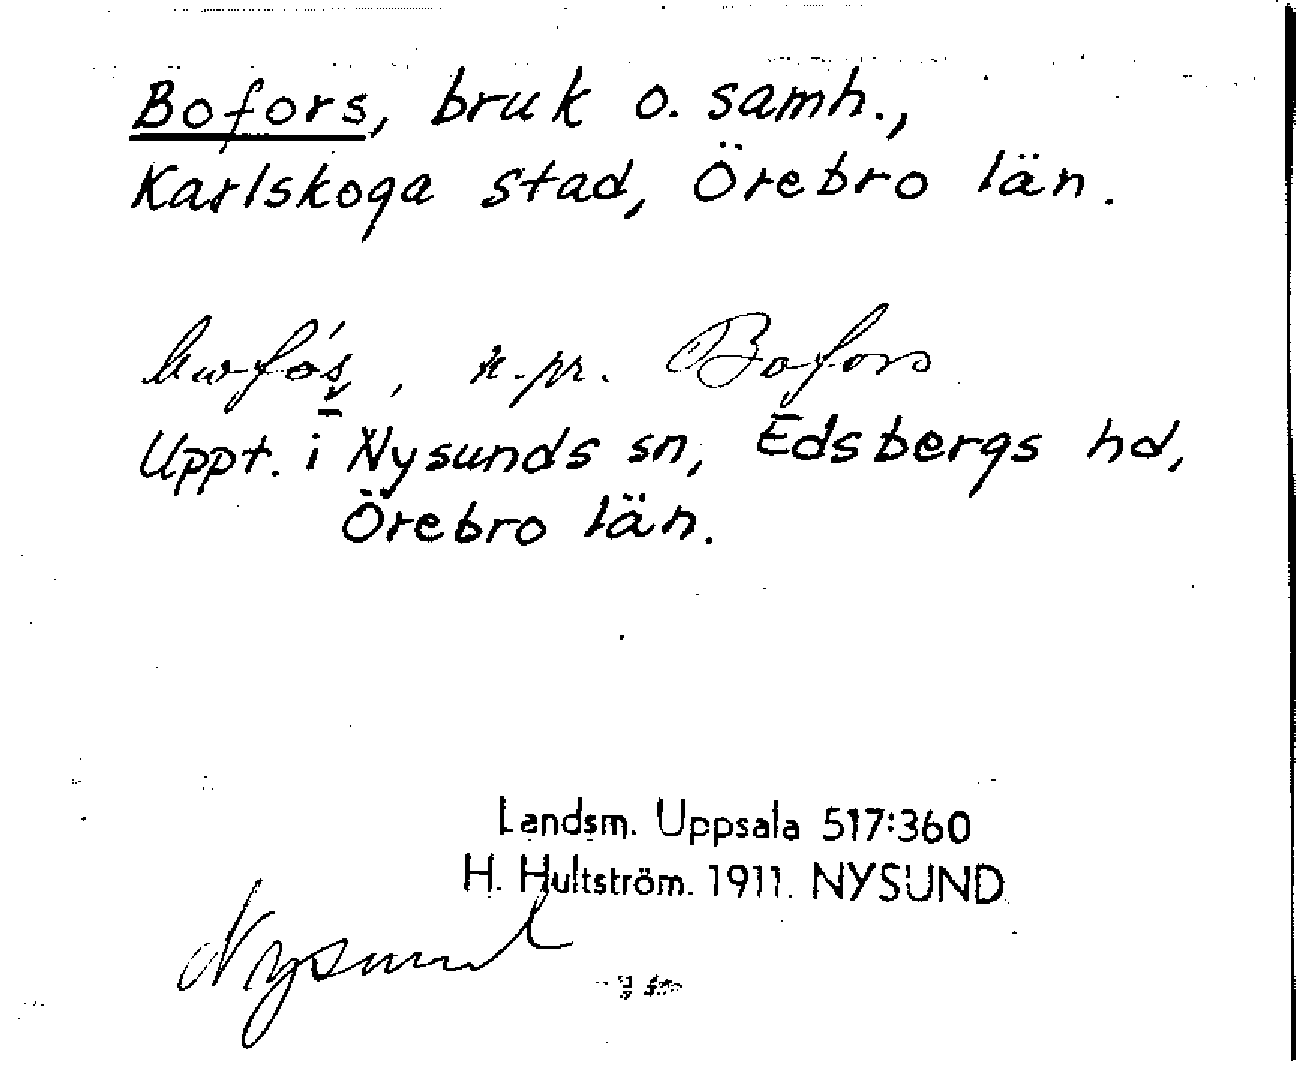 Bofors, bruk o. samh.,
Karlskoga stad, Örebro län.
n.pr. Bofors
Uppt. i Nysunds sn, Edsbergs hd,
Örebro län.
Landsm. Uppsala 517:360
H. Hultström. 1911. NYSUND
Nysund